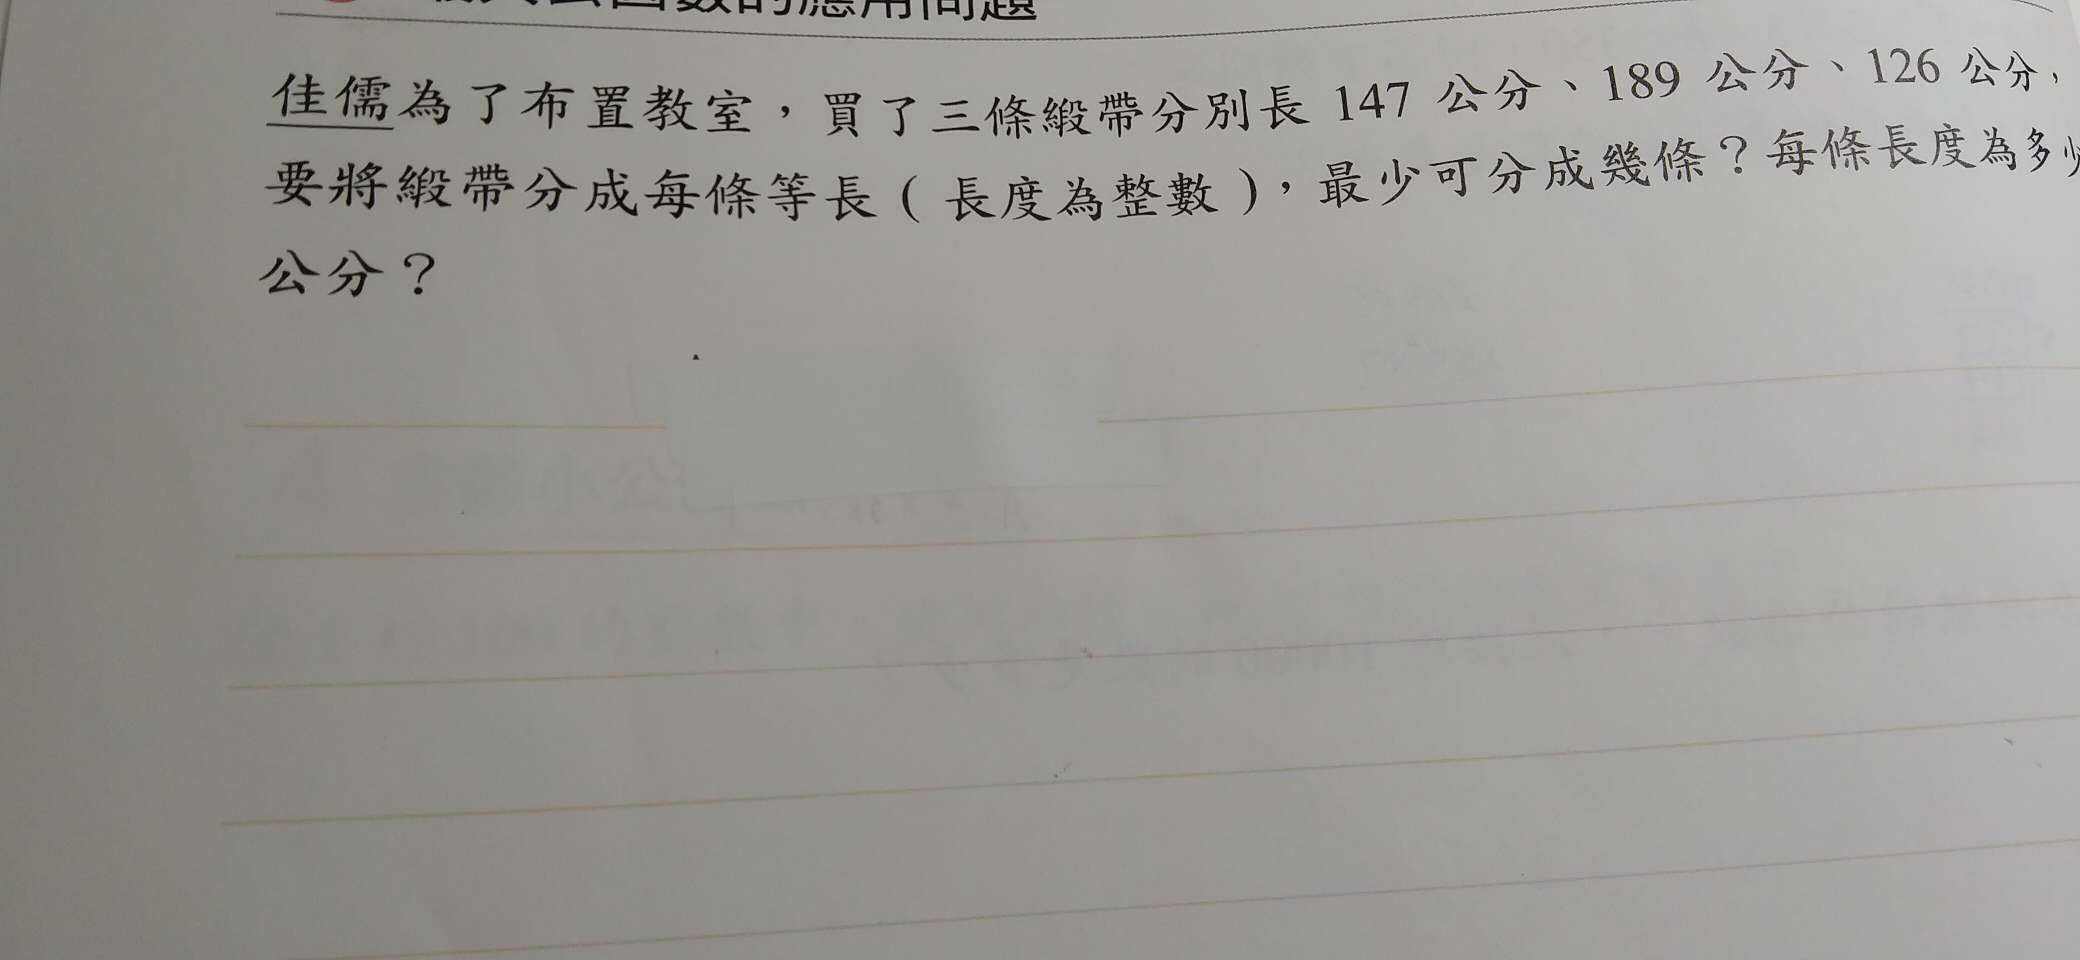 最大公因數的應用問題
佳儒為了布置教室，買了三條緞帶分別長 147 公分、189 公分、126 公分，
要將緞帶分成每條等長（長度為整數），最少可分成幾條？每條長度為多少
公分？